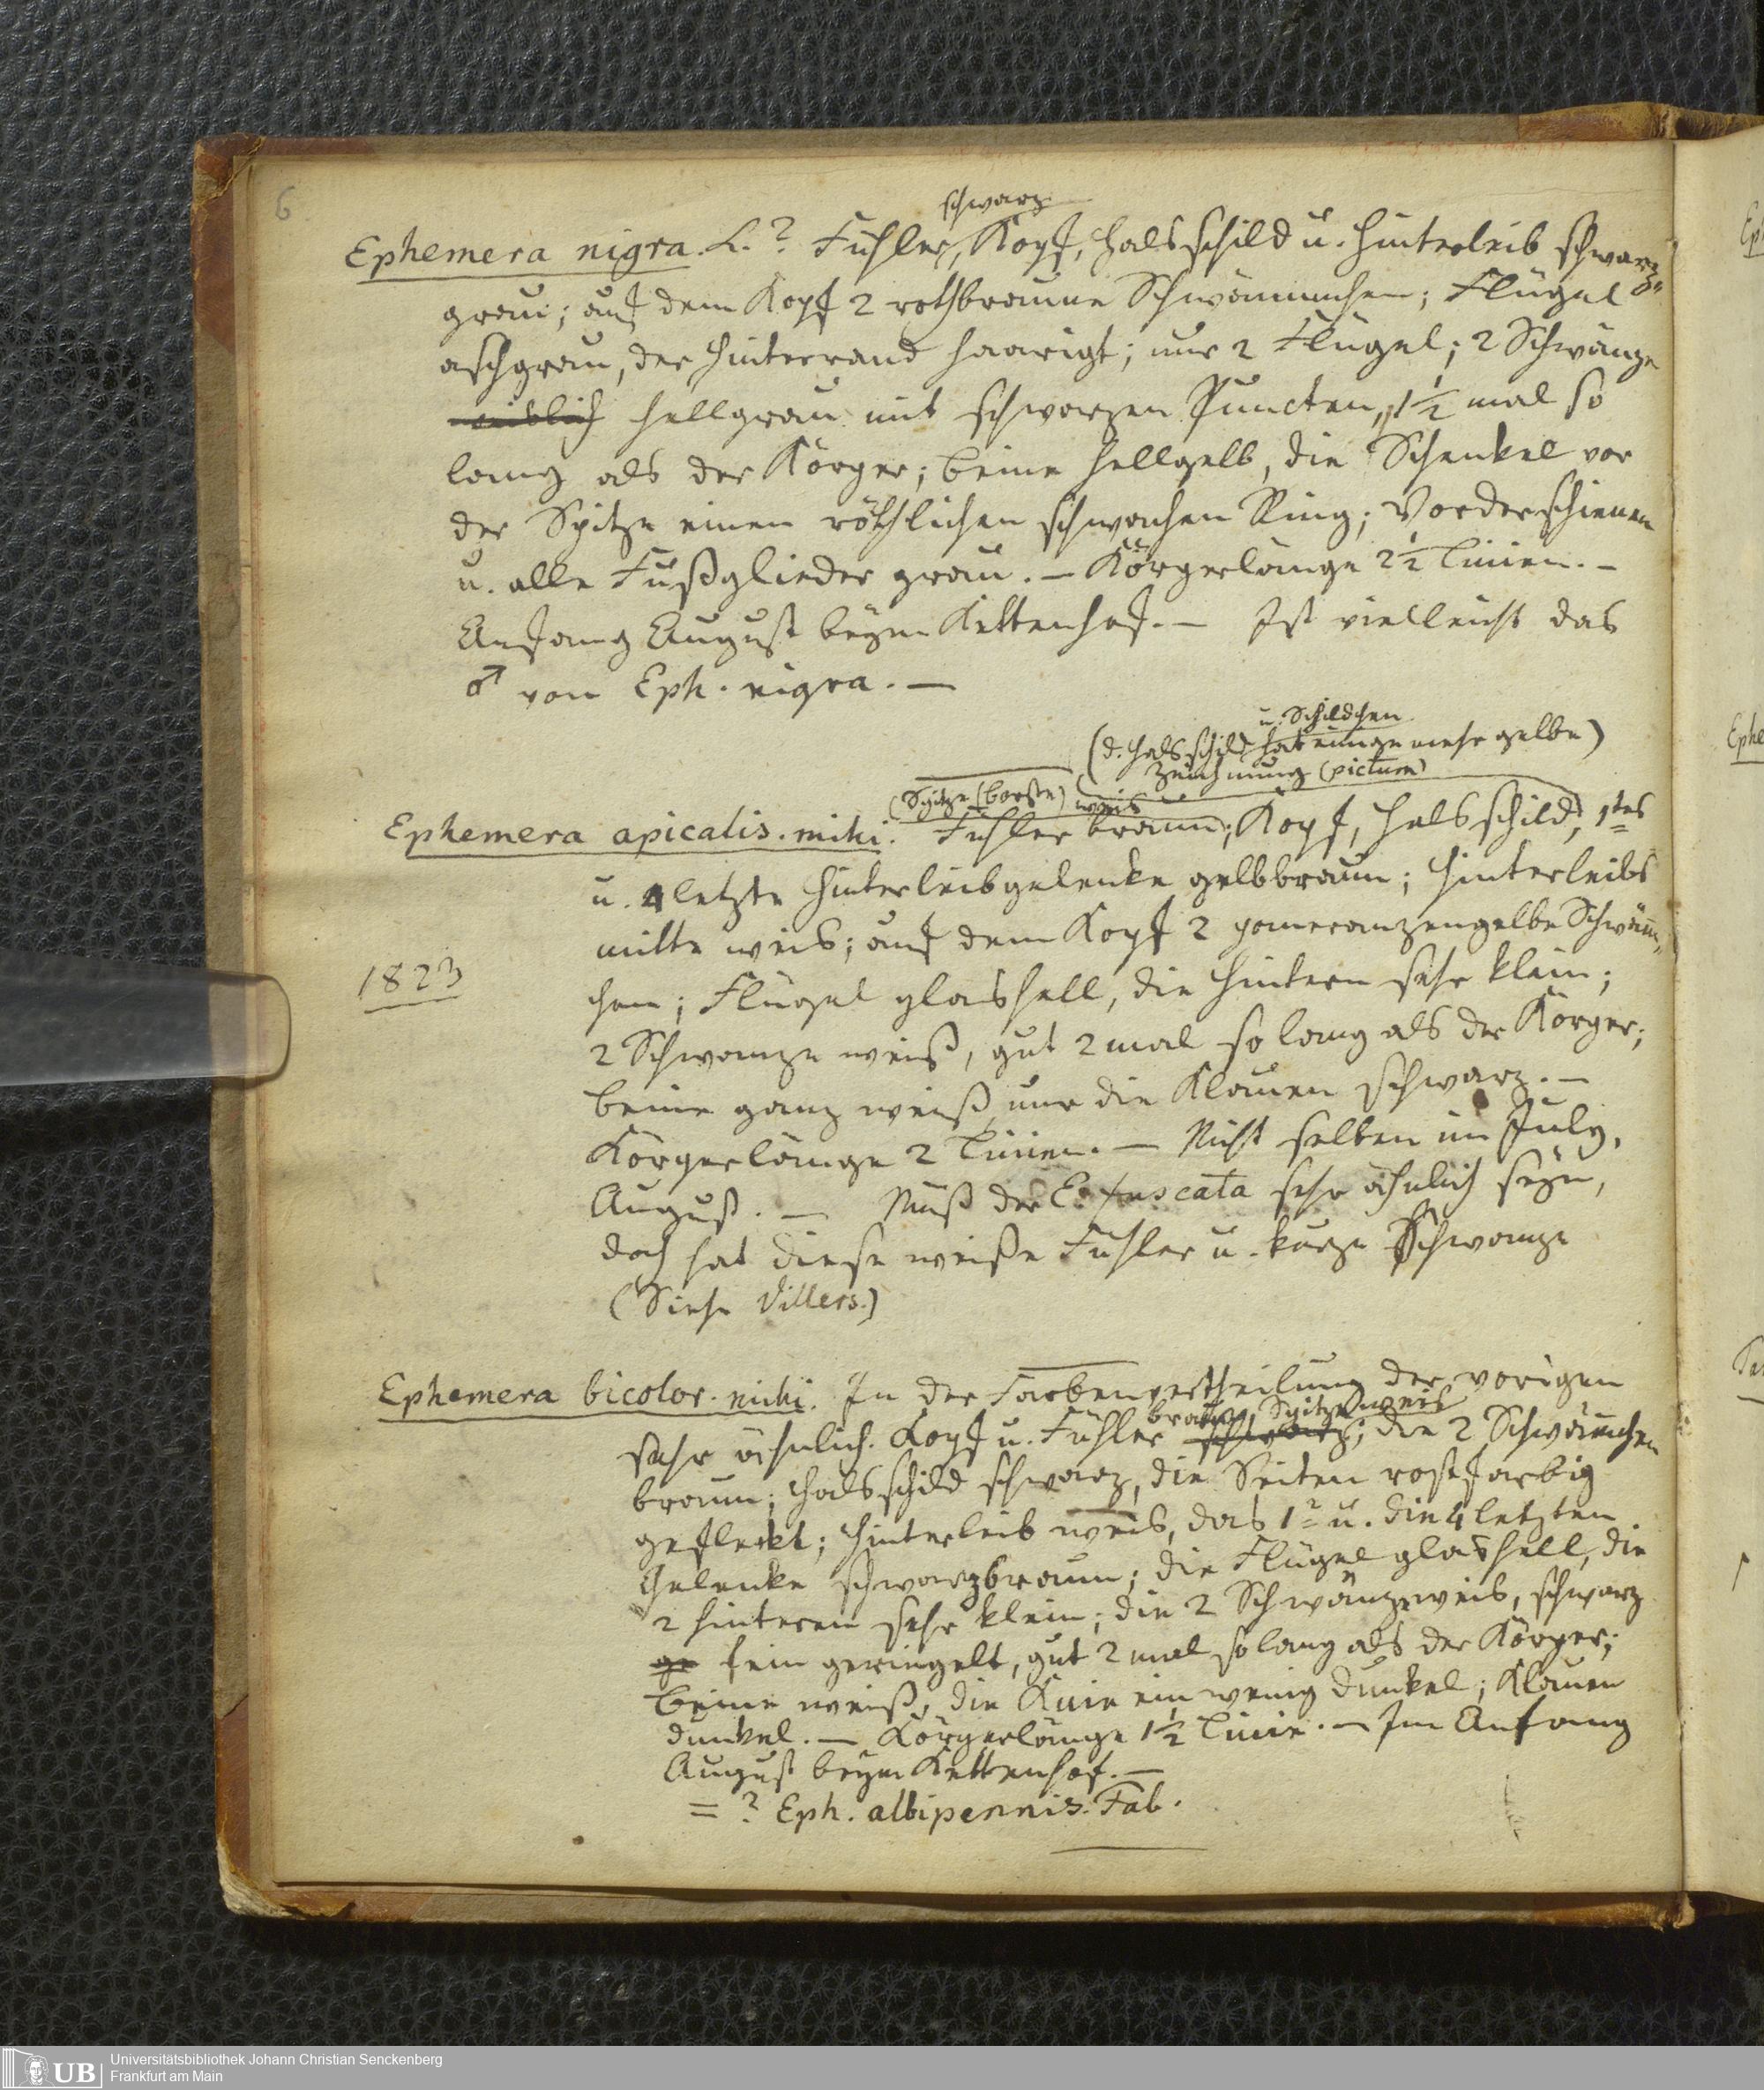 6
schwarz
Ephemera nigra. L. ? Fühler, Kopf, Halsschild u. Hinterleib schwarz-
grau; auf dem Kopf 2 rothbraune Schwämmchen; Flügel
aschgrau, der Hinterrand haarigt; nur 2 Flügel; 2 Schwänze
weißlich hellgrau mit schwarzen Puncten, 1½ mal so
lang als der Körper; Beine hellgelb, die Schenkel vor
der Spitze einen röthlichen schwachen Ring; Vorderschienen
u. alle Fußglieder grau. — Körperlänge 2½ Linien. —
Anfang August beÿm Kettenhof. — Ist vielleicht das
♂ von Eph. nigra. —
u. Schildchen
(d. Halsschild hat einige mehr gelbe)
Zeichnung (pictum)
(Spitze (Borste) weis
Ephemera apicalis. mihi. Fühler braun; Kopf, Halsschild, 1tes
u. 4 letzte Hinterleibgelenke gelbbraun; Hinterleibs
mitte weis; auf dem Kopf 2 pomeranzengelbe Schwäm̄-
chen; Flügel glashell, die hintern sehr klein;
1823
2 Schwanze weiß, gut 2 mal so lang als der Körper;
Beine ganz weiß nur die Klauen schwarz. —
Körperlänge 2 Linien. — Nicht selten im July,
August. — Muß der E. fuscata sehr ähnlich seÿn,
doch hat diese weiße Fühler u. kurze Schwanze
(Siehe Villers.)
Ephemera bicolor. mihi. In der Farbenvertheilung der vorigen
braun, Spitze weis
sehr ähnlich. Kopf u. Fühler schwarz; die 2 Schwäm̄chen
braun; Halsschild schwarz, die Seiten rostfarbig
gefleckt; Hinterleib weis, das 1e u. die 4 letzten
Gelenke schwarzbraun; die Flügel glashell, die
2 hinteren sehr klein; die 2 Schwänze weis, schwarz
ge fein geringelt, gut 2 mal so lang als der Körper;
Beine weiß, die Knie ein wenig dunkel; Klauen
dunkel. — Körperlänge 1½ Linie. — Im Anfang
August beÿm Kettenhof. —
= ? Eph. albipennis. Fab.
UB
Universitätsbibliothek Johann Christian Senckenberg
Frankfurt am Main